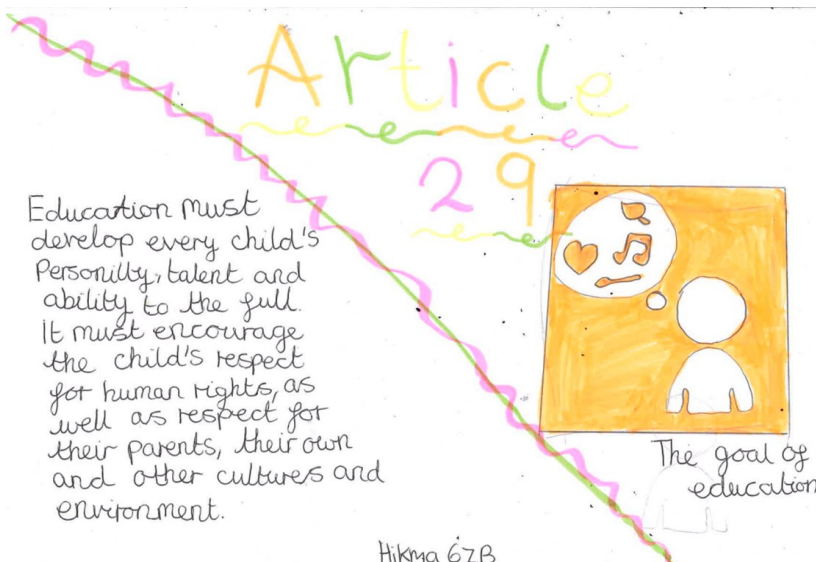 Article
29
Education must
develop every child's
Personilty, talent and
ability to the full.
It must encourage
the child's respect
for human rights, as
well as respect for
their parents, their own
and other cultures and
environment.
The goal of
education
Hikma 6ZB